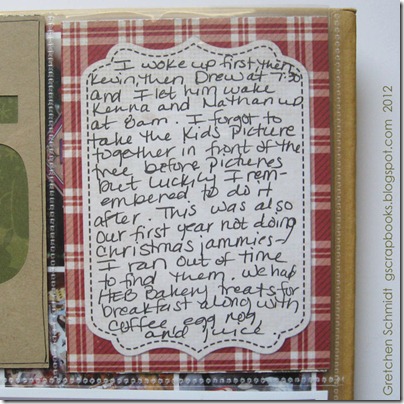 I woke up first then
Kevin, then Drew at 7:30
and I let him wake
Kenna and Nathan up
at 8am. I forgot to
take the Kids Picture
together in front of the
tree before pictures
but luckily I rem-
embered to do it
after. This was also
our first year not doing
Christmas jammies-
I ran out of time
to find them. We had
HEB Bakery treats for
breakfast along with
coffee, egg nog,
and juice
Gretchen Schmidt gscrapbooks.blogspot.com 2012